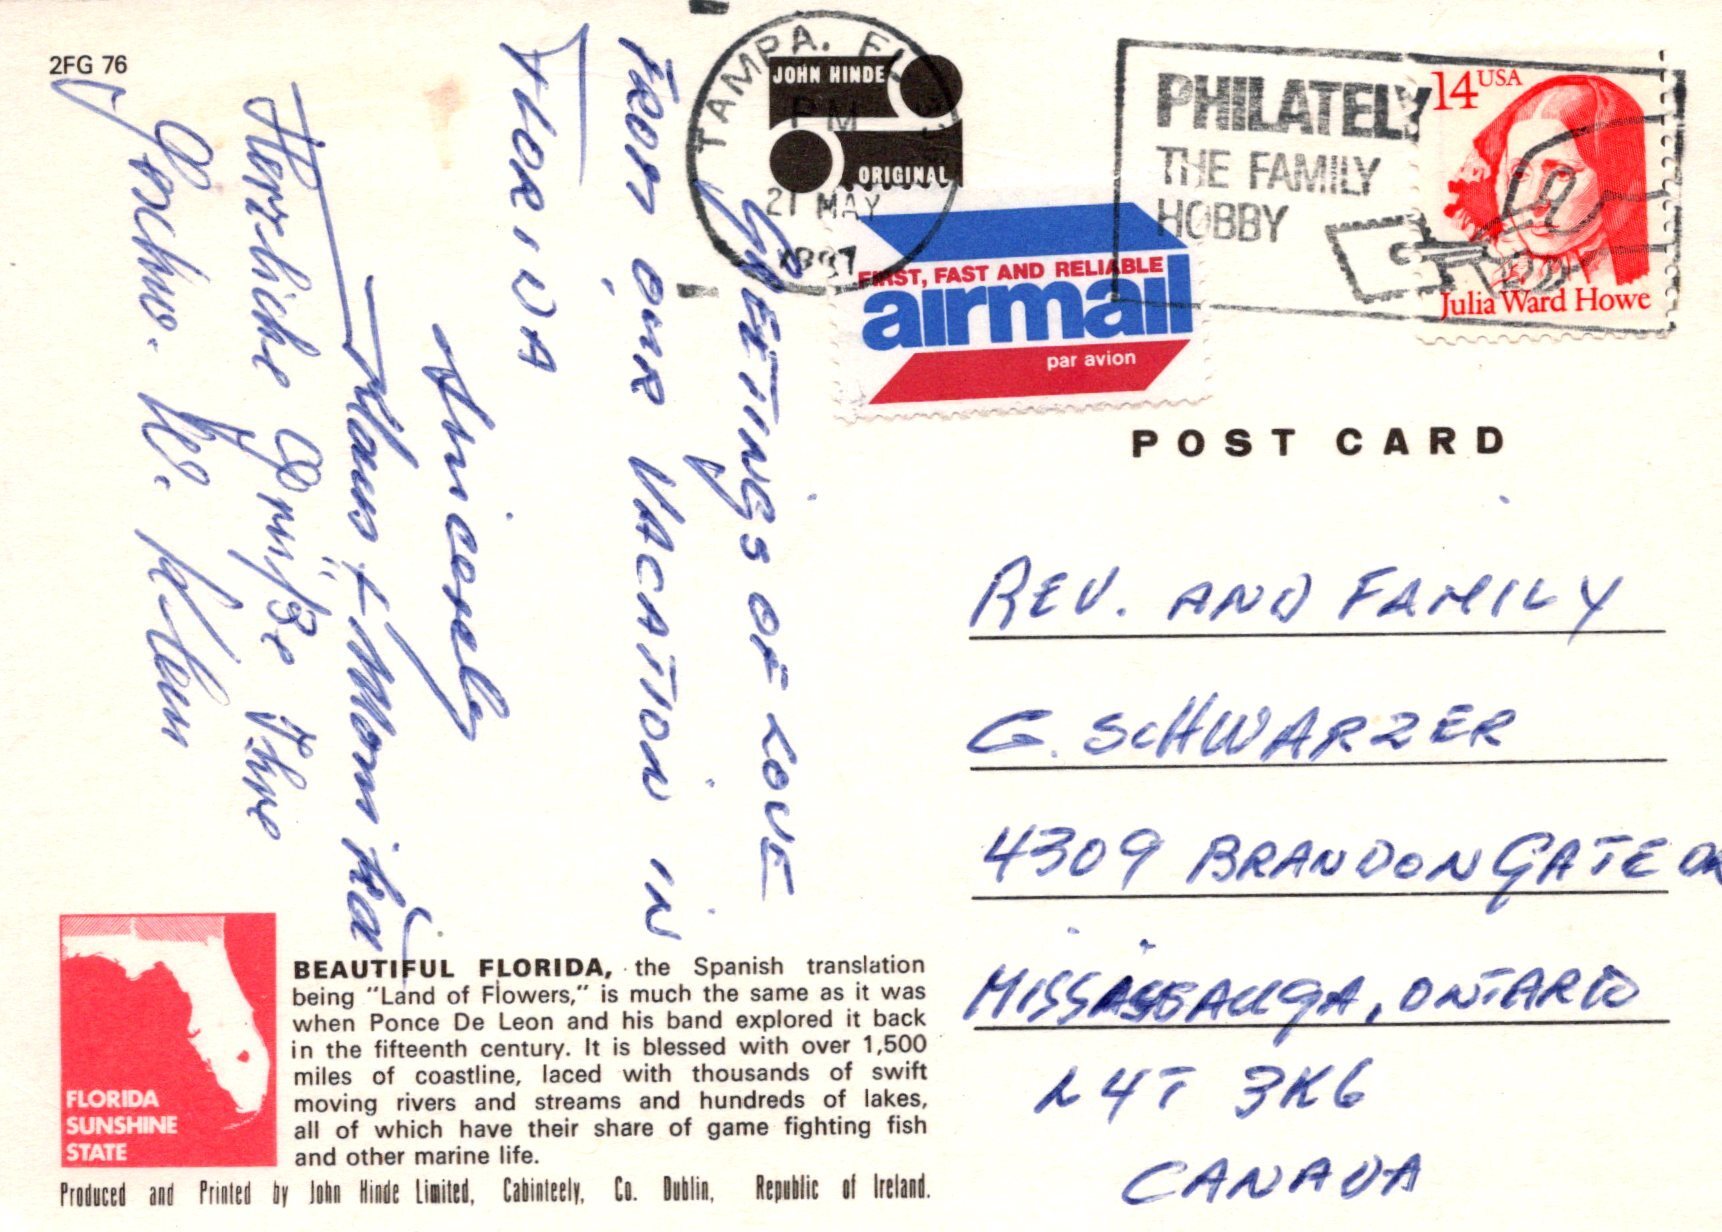 2FG 76
JOHN HINDE
ORIGINAL
TAMPA, FL
PM
21 MAY
PHILATELY
THE FAMILY
HOBBY
14 USA
Julia Ward Howe
FIRST, FAST AND RELIABLE
airmail
par avion
POST CARD
GREETINGS OF LOVE
FROM OUR VACATION IN
FLORIDA
Sincerely
Klaus +
Herzliche Grüße Ihre
REV. AND FAMILY
G. SCHWARZER
4309 BRANDON GATE DR
MISSISSAUGA, ONTARIO
L4T 3K6
CANADA
FLORIDA
SUNSHINE
STATE
BEAUTIFUL FLORIDA, the Spanish translation
being "Land of Flowers," is much the same as it was
when Ponce De Leon and his band explored it back
in the fifteenth century. It is blessed with over 1,500
miles of coastline, laced with thousands of swift
moving rivers and streams and hundreds of lakes,
all of which have their share of game fighting fish
and other marine life.
Produced and Printed by John Hinde Limited, Cabinteely, Co. Dublin, Republic of Ireland.